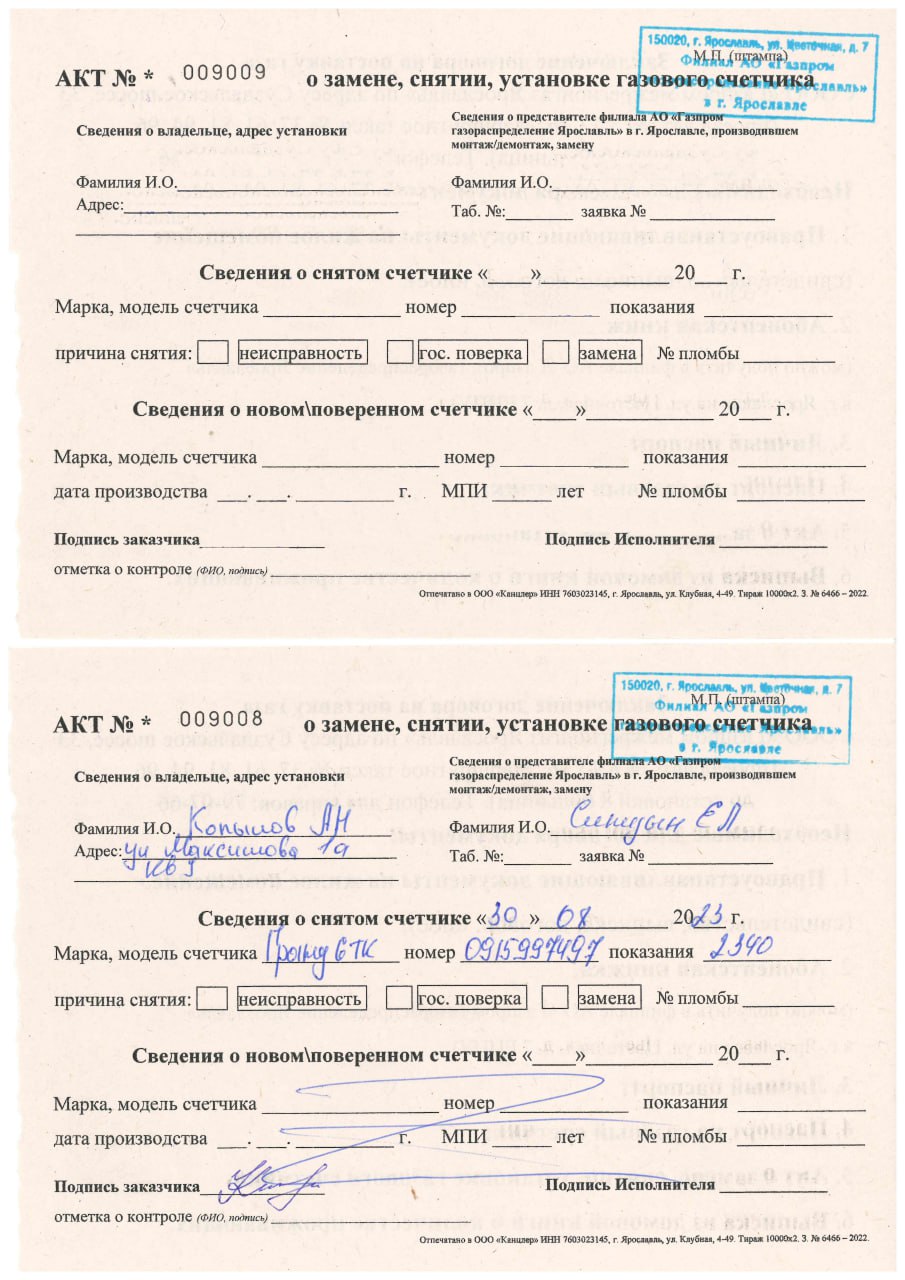 150020, г. Ярославль, ул. Цветочная, д. 7
М.П. (штампа)
Филиал АО «Газпром
газораспределение Ярославль»
в г. Ярославле
АКТ № * 009009 о замене, снятии, установке газового счетчика
Сведения о владельце, адрес установки
Сведения о представителе филиала АО «Газпром
газораспределение Ярославль» в г. Ярославле, производившем
монтаж/демонтаж, замену
Фамилия И.О. Фамилия И.О.
Адрес: Таб. №: заявка №
Сведения о снятом счетчике « » 20 г.
Марка, модель счетчика номер показания
причина снятия: неисправность гос. поверка замена № пломбы
Сведения о новом\поверенном счетчике « » 20 г.
Марка, модель счетчика номер показания
дата производства . . г. МПИ лет № пломбы
Подпись заказчика Подпись Исполнителя
отметка о контроле (ФИО, подпись)
Отпечатано в ООО «Канцлер» ИНН 7603023145, г. Ярославль, ул. Клубная, 4-49. Тираж 10000х2. З. № 6466 – 2022.
150020, г. Ярославль, ул. Цветочная, д. 7
М.П. (штампа)
Филиал АО «Газпром
газораспределение Ярославль»
в г. Ярославле
АКТ № * 009008 о замене, снятии, установке газового счетчика
Сведения о владельце, адрес установки
Сведения о представителе филиала АО «Газпром
газораспределение Ярославль» в г. Ярославле, производившем
монтаж/демонтаж, замену
Фамилия И.О. Копылов АН Фамилия И.О. ЕЛ
Адрес: ул Максимова 1а Таб. №: заявка №
кв 9
Сведения о снятом счетчике «30» 08 2023 г.
Марка, модель счетчика Гранд 6ТК номер 0915997497 показания 2340
причина снятия: неисправность гос. поверка замена № пломбы
Сведения о новом\поверенном счетчике « » 20 г.
Марка, модель счетчика номер показания
дата производства . . г. МПИ лет № пломбы
Подпись заказчика Подпись Исполнителя
отметка о контроле (ФИО, подпись)
Отпечатано в ООО «Канцлер» ИНН 7603023145, г. Ярославль, ул. Клубная, 4-49. Тираж 10000х2. З. № 6466 – 2022.